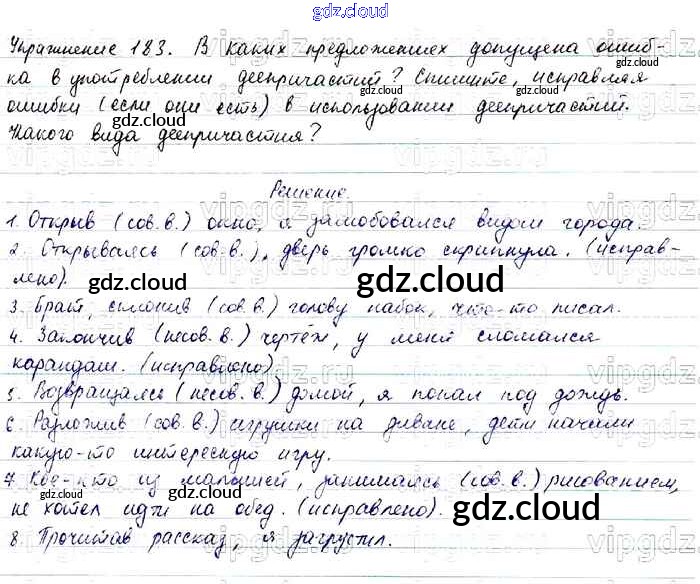 gdz.cloud
Упражнение 183. В каких предложениях допущена ошиб-
ка в употреблении деепричастий? Спишите, исправляя
gdz.cloud gdz.cloud
ошибки (если они есть) в использовании деепричастий.
gdz.cloud
Какого вида деепричастия?
Решение.
1. Открыв (сов. в.) окно, я залюбовался видом города.
2. Открываясь (сов. в.), дверь громко скрипнула. (исправ-
лено).
gdz.cloud
gdz.cloud
3. Брат, склонив (сов. в.) голову набок, что-то писал.
4. Закончив (несов. в.) чертёж, у меня сломался
карандаш. (исправлено).
5. Возвращаясь (несов. в.) домой, я попал под дождь.
6. Разложив (сов. в.) игрушки на диване, дети начали
какую-то интересную игру.
7. Кое-кто из малышей, занимаясь (сов. в.) рисованием,
gdz.cloud gdz.cloud
не хотел идти на обед. (исправлено).
gdz.cloud
8. Прочитав рассказ, я загрустил.
vipgdz vipgdz.ru